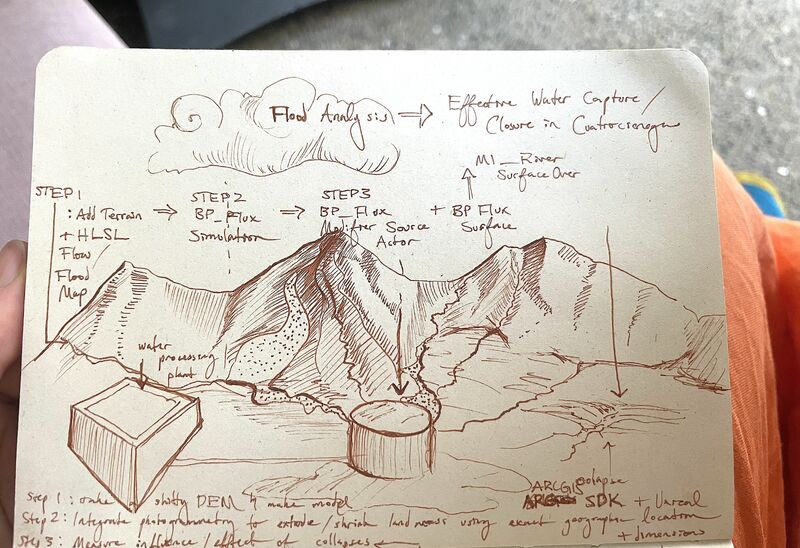 Flood Analysis ⇒ Effective Water Capture /
Closure in Cuatrocienegas
M1_River
Surface Over
STEP 1
: Add Terrain
+ HLSL
Flow /
Flood
Map
⇒ STEP 2
BP_Flux
Simulation
⇒ STEP 3
BP_Flux
Modifier Source
Actor
+ BP Flux
Surface
water
processing
plant
colapse
ARCGIS
SDK + Unreal
Step 1 : take a shitty DEM & make model
Step 2 : Integrate photogrammetry to extrude / shrink landmass using exact geographic location
+ dimensions
Step 3 : Measure influence / effect of collapses